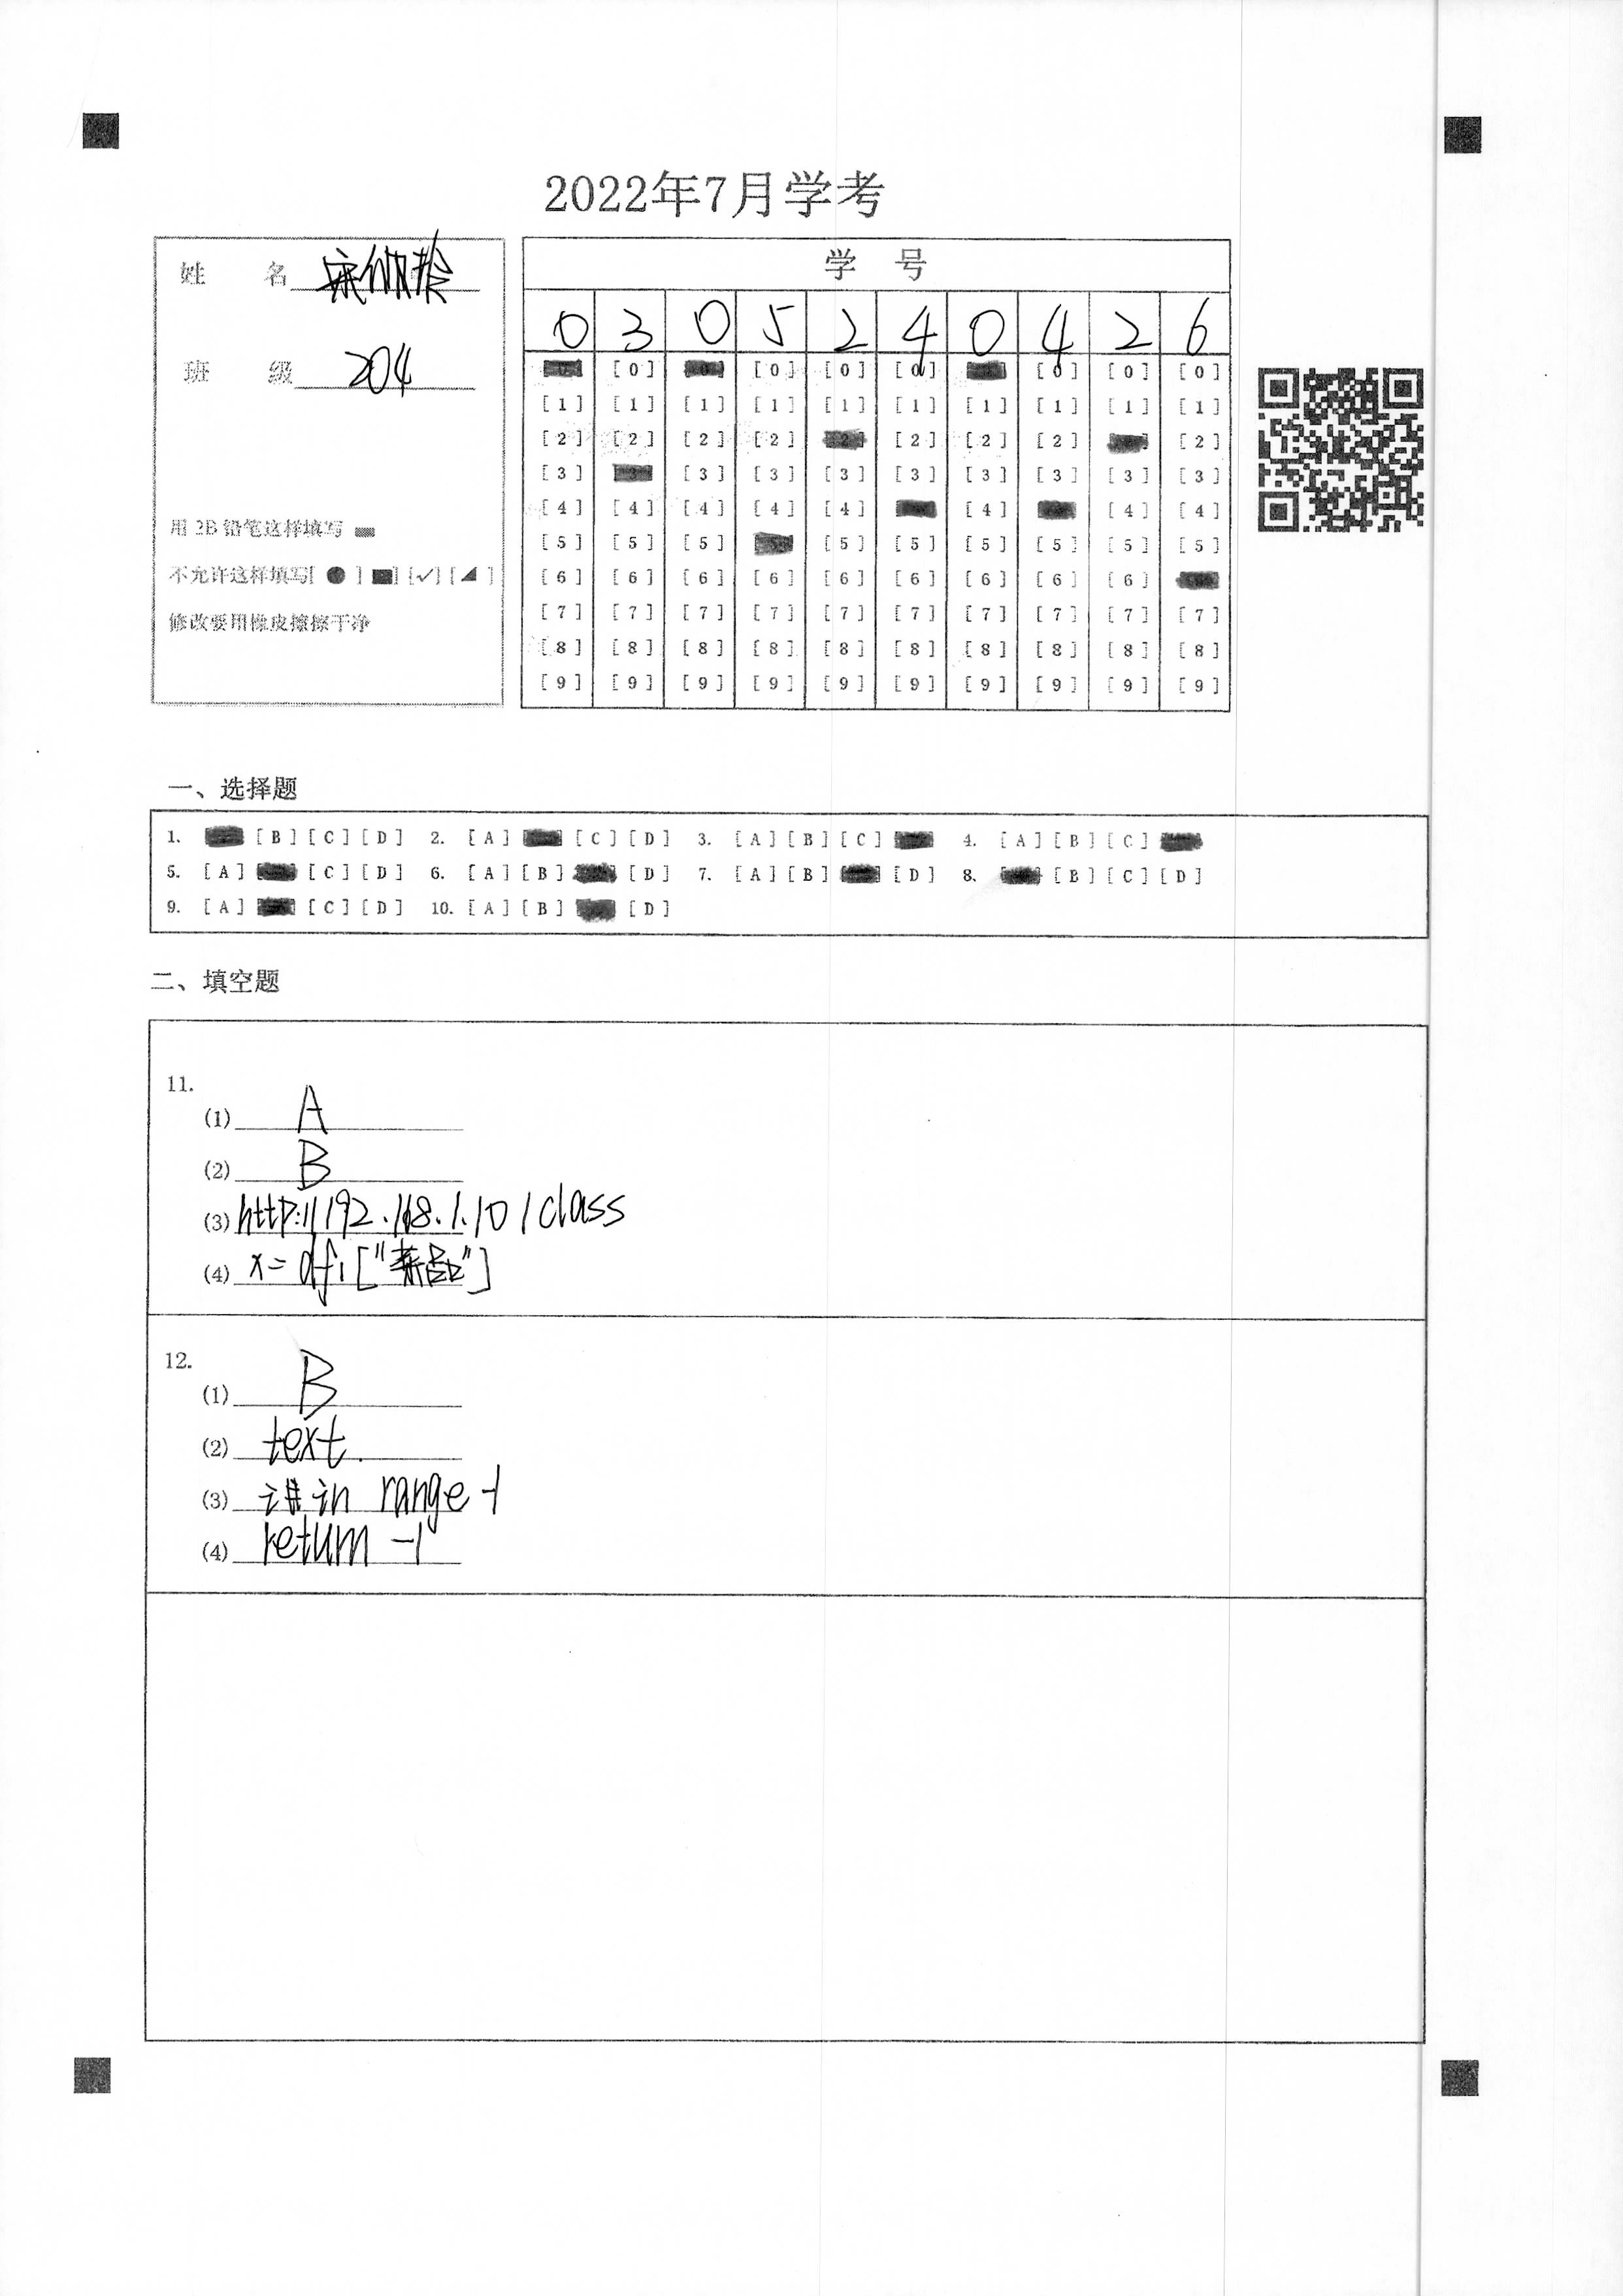 2022年7月学考
姓 名
班 级 204
用 2B 铅笔这样填写
不允许这样填写[ ● ] ■] [✓] [◢ ]
修改要用橡皮擦擦干净
学 号
0 3 0 5 2 4 0 4 2 6
[0] [0] [0] [0] [0] [0] [0]
[1] [1] [1] [1] [1] [1] [1] [1] [1] [1]
[2] [2] [2] [2] [2] [2] [2] [2] [2]
[3] [3] [3] [3] [3] [3] [3] [3] [3] [3]
[4] [4] [4] [4] [4] [4] [4] [4]
[5] [5] [5] [5] [5] [5] [5] [5] [5] [5]
[6] [6] [6] [6] [6] [6] [6] [6] [6]
[7] [7] [7] [7] [7] [7] [7] [7] [7] [7]
[8] [8] [8] [8] [8] [8] [8] [8] [8] [8]
[9] [9] [9] [9] [9] [9] [9] [9] [9] [9]
一、选择题
1. [B] [C] [D] 2. [A] [C] [D] 3. [A] [B] [C] 4. [A] [B] [C]
5. [A] [C] [D] 6. [A] [B] [D] 7. [A] [B] [D] 8. [B] [C] [D]
9. [A] [C] [D] 10. [A] [B] [D]
二、填空题
11.
(1) A
(2) B
(3) http://192.168.1.10/class
(4) x=df1["菜品"]
12.
(1) B
(2) text.
(3) in range -1
(4) return -1